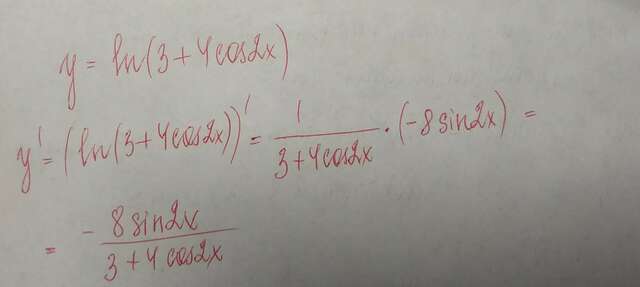 y = ln(3+4cos2x)
y' = (ln(3+4cos2x))' = 1/(3+4cos2x) · (-8sin2x) =
= - 8sin2x/(3+4cos2x)